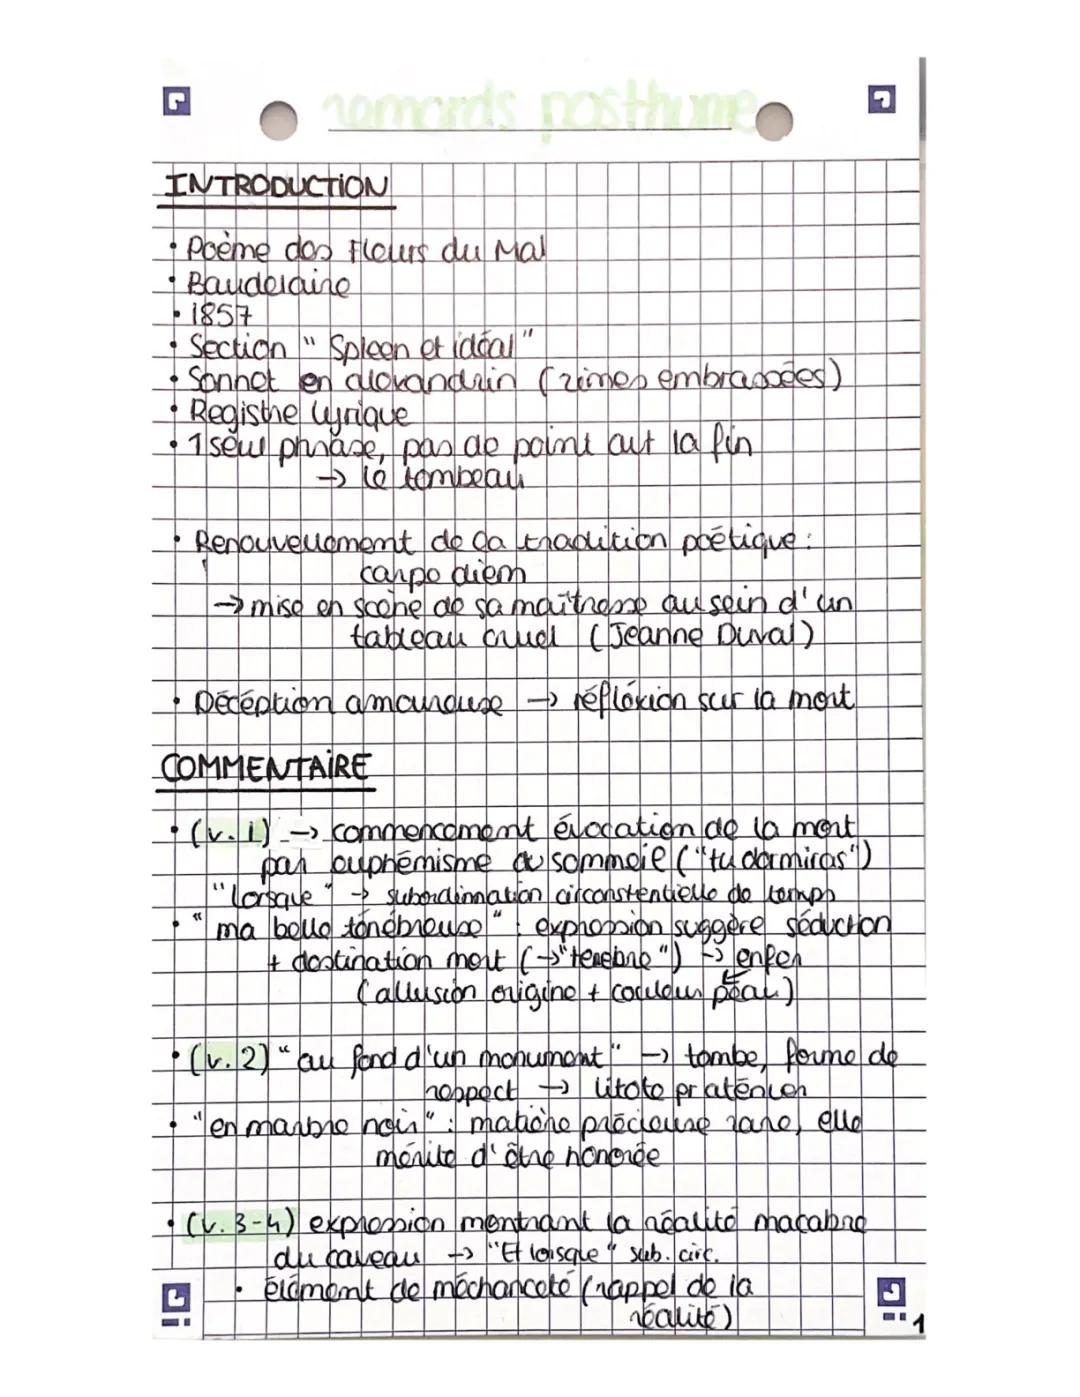 remords posthume
INTRODUCTION
• Poème des Fleurs du Mal
• Baudelaire
• 1857
• Section " Spleen et idéal "
• Sonnet en alexandrin (rimes embrassées)
• Registre lyrique
• 1 seul phrase, pas de point aut la fin
→ le tombeau
• Renouvellement de la tradition poétique :
carpe diem
→ mise en scène de sa maîtresse au sein d'un
tableau cruel (Jeanne Duval)
• Déception amoureuse → réfléxion sur la mort
COMMENTAIRE
• (v. 1) → commencement évocation de la mort
par euphémisme du sommeil ("tu dormiras")
"lorsque" → subordinnation circonstentielle de temps
• " ma belle ténébreuse " : expression suggère séduction
+ destination mort (→ "tenebre ") → enfer
(allusion origine + couleur peau)
• (v. 2) " au fond d'un monument " → tombe, forme de
respect → litote pr aténuer
• "en marbre noir" : matière précieuse rare, elle
mérite d'être honorée
• (v. 3-4) expression montrant la réalité macabre
du caveau → "Et lorsque " sub. circ.
• élément de méchanceté (rappel de la
réalité)
1